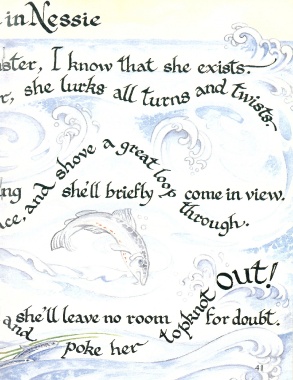 in Nessie
ster, I know that she exists.
r, she lurks all turns and twists.
ng she'll briefly come in view.
ce, and shove a great loop through.
she'll leave no room for doubt.
and poke her topknot out!
41